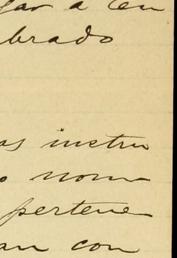 gar a ten
brado
as instru
o nom-
pertene-
an con